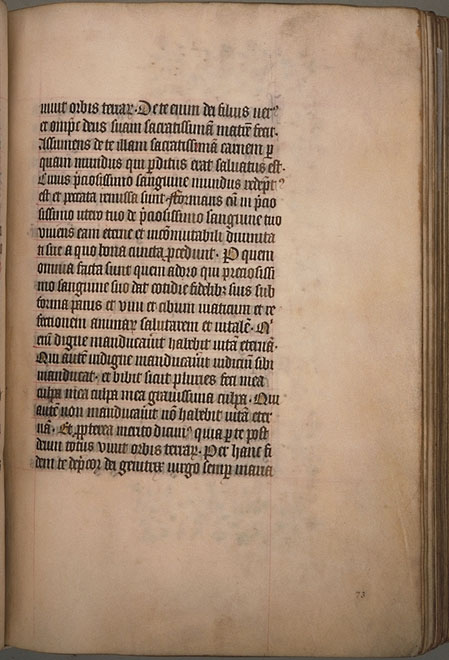 muut orbis terrar. De te enim dei filius uer⁹
et omp̄s deus suam sacratissimā matrē fecit.
Assumens de te illam sacratissimā carnem p
quam mundus qui pditus erat saluatus est.
Cuius p̄ciosissimo sanguine mundus redēpt⁹
est et peccata remissa sunt. fformans eā in p̄cio
sissimo utero tuo de p̄ciosissimo sanguine tuo
viuens eam eterne et incōmutabili diuinita
ti sue a quo bona cuncta pcedunt. P quem
omnia facta sunt quem adoro qui preciosissi
mo sanguine suo dat cotidie fidelibz suis sub
forma panis et vini et cibum viaticum et re
fectionem animar salutarem et vitalē.
eū digne manducauīt habebit vitā eternā.
Qui autē indigne manducauīt iudiciū sibi
manducat. et bibit sicut pluries feci mea
culpa mea culpa mea grauissima culpa. Qui
autē non manducauīt nō habebit vitā eter
nā. Et ppterea merito dicim⁹ quia p te post
deum totus viuit orbis terrar. Per hanc fi
dem te dep̄cor dei genitrix uirgo semp maria
73